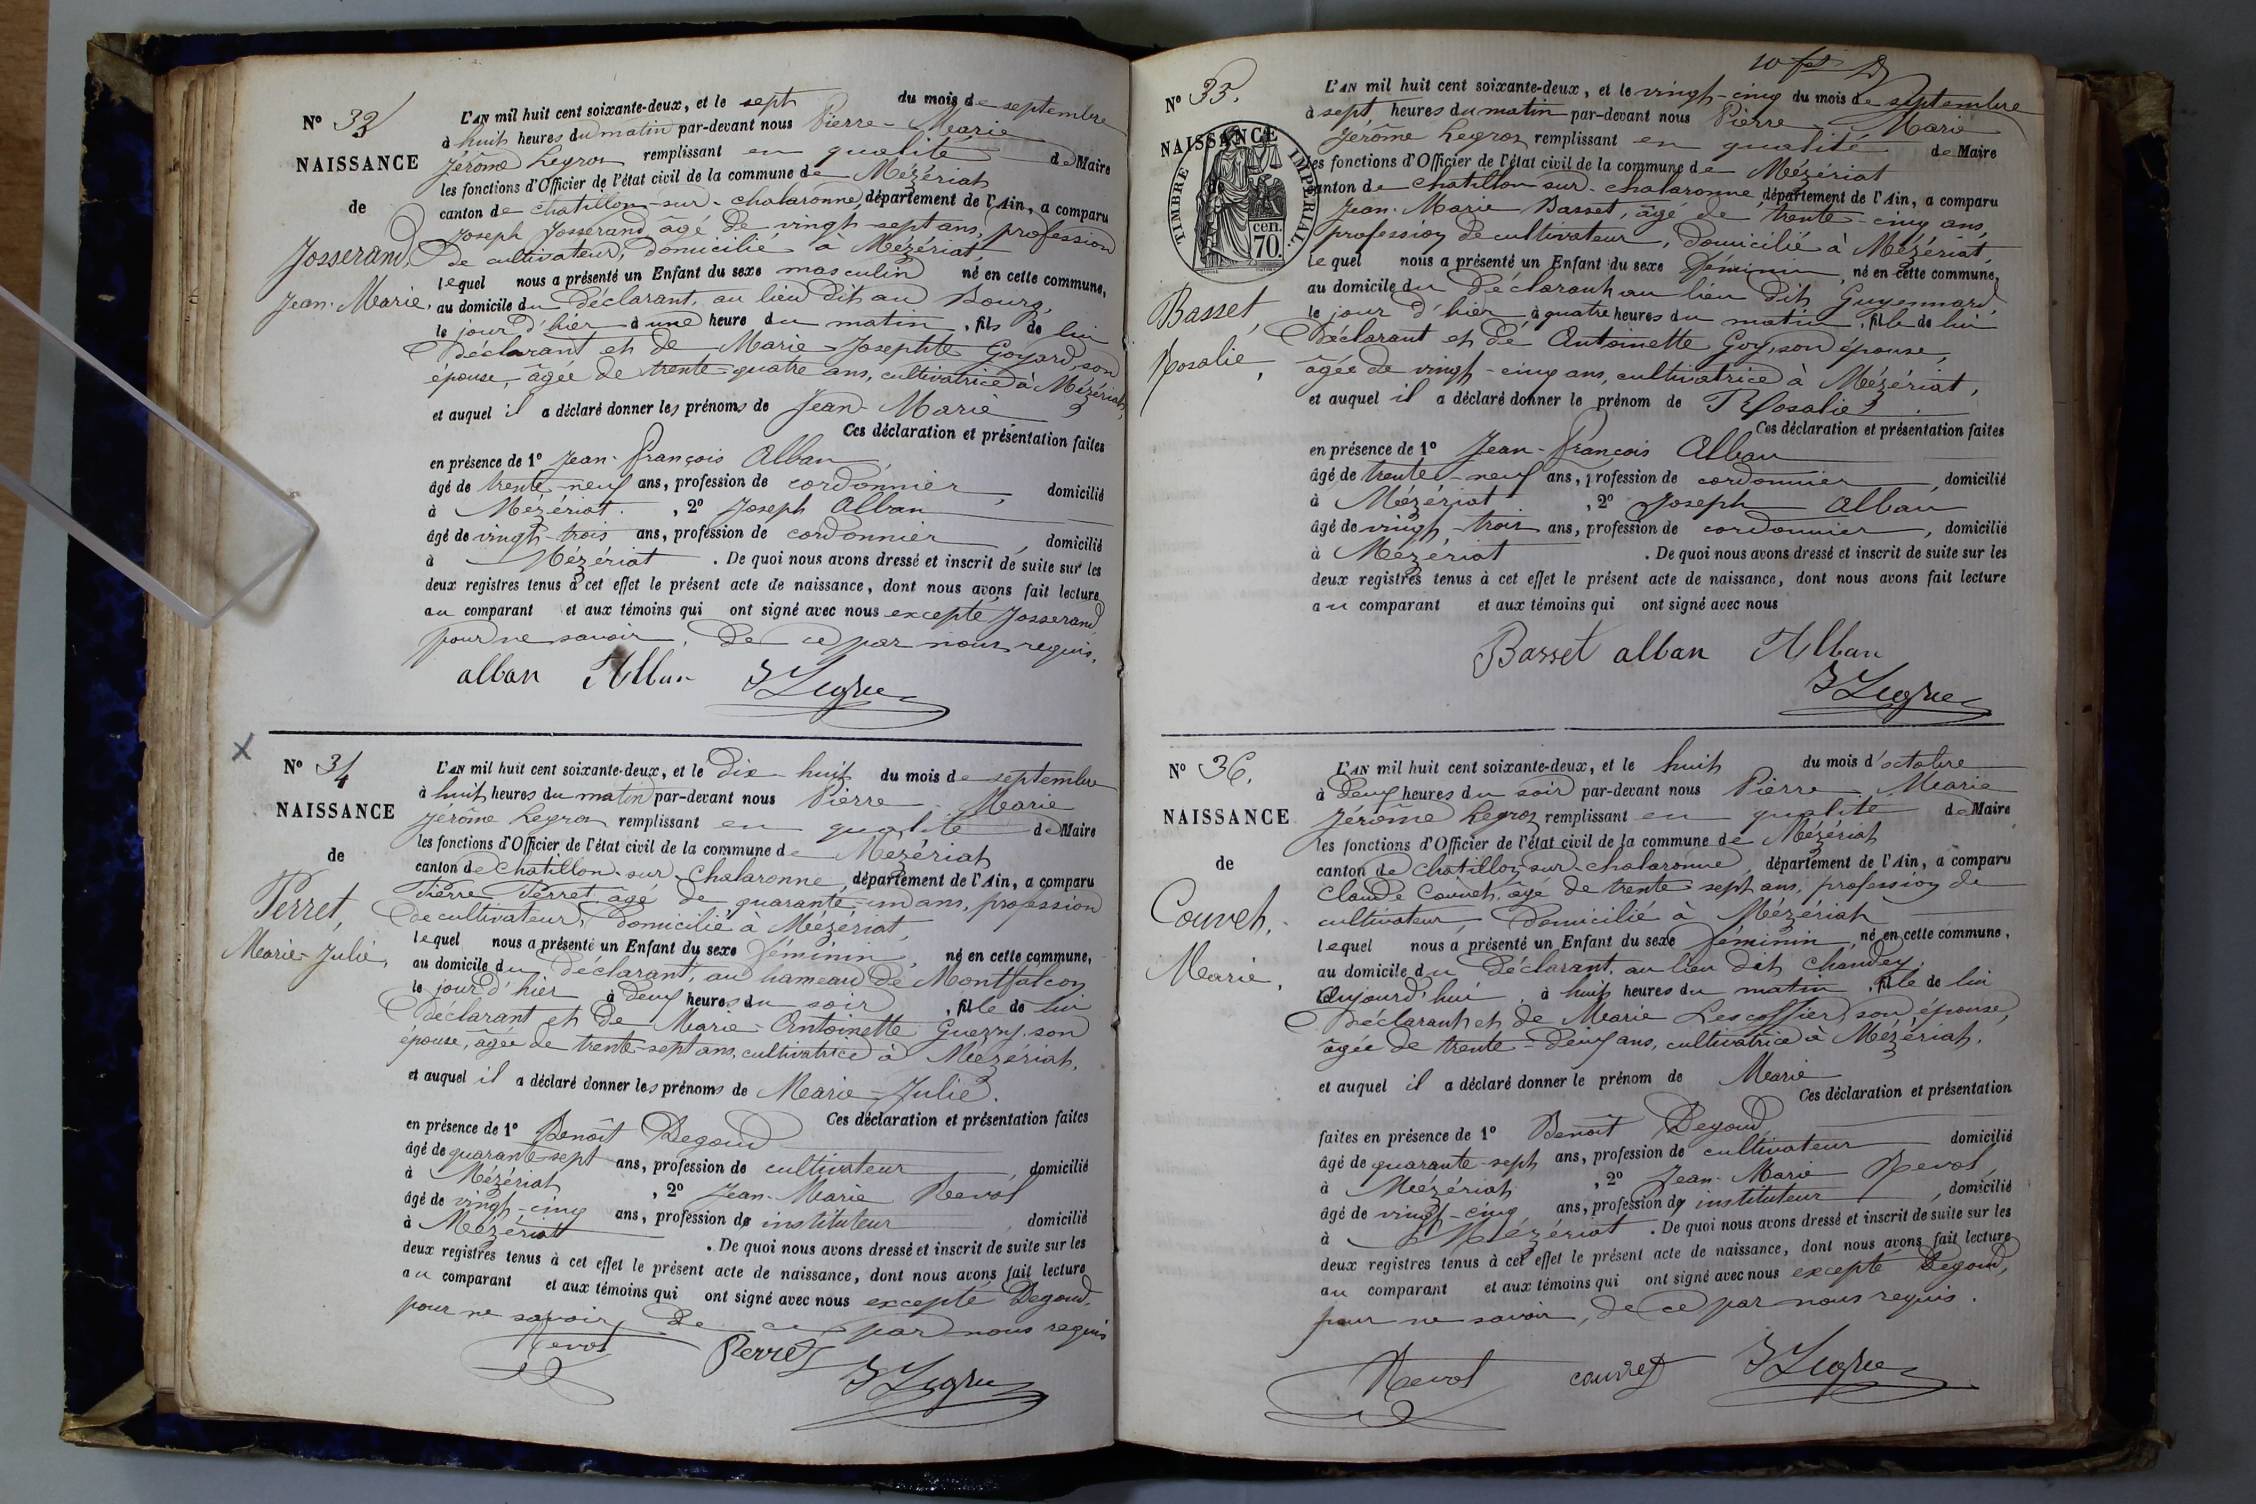 N° 33
NAISSANCE
de
Josserand,
Jean-Marie.
L'AN mil huit cent soixante-deux, et le sept du mois de septembre
à huit heures du matin par-devant nous Pierre-Marie
Jérôme Legros remplissant en qualité de Maire
les fonctions d'Officier de l'état civil de la commune de Mézériat
canton de chatillon-sur-chalaronne, département de l'Ain, a comparu
Joseph Josserand, âgé de vingt-sept ans, profession
de cultivateur, domicilié à Mézériat,
lequel nous a présenté un Enfant du sexe masculin né en cette commune,
au domicile du déclarant, au lieu dit au Bourg,
le jour d'hier à une heure du matin, fils de lui
déclarant et de Marie-Josephte Goyard, son
épouse, âgée de trente-quatre ans, cultivatrice à Mézériat,
et auquel il a déclaré donner les prénoms de Jean-Marie
Ces déclaration et présentation faites
en présence de 1° Jean-François Alban
âgé de trente-neuf ans, profession de cordonnier, domicilié
à Mézériat, 2° Joseph Alban
âgé de vingt-trois ans, profession de cordonnier, domicilié
à Mézériat. De quoi nous avons dressé et inscrit de suite sur les
deux registres tenus à cet effet le présent acte de naissance, dont nous avons fait lecture
au comparant et aux témoins qui ont signé avec nous excepté Josserand,
pour ne savoir, de ce par nous requis.
alban Alban JLegros
N° 34
NAISSANCE
de
Perret,
Marie-Julie,
L'AN mil huit cent soixante-deux, et le dix-huit du mois de septembre
à huit heures du matin par-devant nous Pierre-Marie
Jérôme Legros remplissant en qualité de Maire
les fonctions d'Officier de l'état civil de la commune de Mézériat
canton de Chatillon-sur-Chalaronne, département de l'Ain, a comparu
Pierre Perret âgé de quarante-un ans, profession
de cultivateur, domicilié à Mézériat,
lequel nous a présenté un Enfant du sexe féminin, né en cette commune,
au domicile du déclarant, au hameau de Montfalcon
le jour d'hier à deux heures du soir, fille de lui
déclarant et de Marie-Antoinette Guerry, son
épouse, âgée de trente-sept ans, cultivatrice à Mézériat,
et auquel il a déclaré donner les prénoms de Marie-Julie.
Ces déclaration et présentation faites
en présence de 1° Benoît Degoud
âgé de quarante-sept ans, profession de cultivateur, domicilié
à Mézériat, 2° Jean-Marie Revol
âgé de vingt-cinq ans, profession de instituteur domicilié
à Mézériat. De quoi nous avons dressé et inscrit de suite sur les
deux registres tenus à cet effet le présent acte de naissance, dont nous avons fait lecture
au comparant et aux témoins qui ont signé avec nous excepté Degoud,
pour ne savoir, de ce par nous requis
Revol Perret JLegros
N° 35.
NAISSANCE
TIMBRE IMPERIAL.
cen.
70.
Basset,
Rosalie,
L'AN mil huit cent soixante-deux, et le vingt-cinq du mois de septembre
à sept heures du matin par-devant nous Pierre Marie
Jérôme Legros remplissant en qualité de Maire
les fonctions d'Officier de l'état civil de la commune de Mézériat
canton de chatillon-sur-chalaronne, département de l'Ain, a comparu
Jean-Marie Basset, âgé de trente-cinq ans,
profession de cultivateur, domicilié à Mézériat,
lequel nous a présenté un Enfant du sexe féminin, né en cette commune,
au domicile du déclarant au lieu dit Guyennard,
le jour d'hier à quatre heures du matin, fille de lui
déclarant et de Antoinette Goy, son épouse,
âgée de vingt-cinq ans, cultivatrice à Mézériat,
et auquel il a déclaré donner le prénom de Rosalie.
Ces déclaration et présentation faites
en présence de 1° Jean-François Alban
âgé de trente-neuf ans, profession de cordonnier, domicilié
à Mézériat, 2° Joseph Alban
âgé de vingt-trois ans, profession de cordonnier, domicilié
à Mézériat. De quoi nous avons dressé et inscrit de suite sur les
deux registres tenus à cet effet le présent acte de naissance, dont nous avons fait lecture
au comparant et aux témoins qui ont signé avec nous
Basset alban Alban
JLegros
N° 36.
NAISSANCE
de
Couvet,
Marie,
L'AN mil huit cent soixante-deux, et le huit du mois d'octobre
à deux heures du soir par-devant nous Pierre Marie
Jérôme Legros remplissant en qualité de Maire
les fonctions d'Officier de l'état civil de la commune de Mézériat
canton de chatillon-sur-chalaronne, département de l'Ain, a comparu
Claude Couvet, âgé de trente-sept ans, profession de
cultivateur, domicilié à Mézériat
lequel nous a présenté un Enfant du sexe féminin, né en cette commune,
au domicile du déclarant, au lieu dit chandey,
aujourd'hui, à huit heures du matin, fille de lui
déclarant et de Marie Lescoffier, son épouse,
âgée de trente-deux ans, cultivatrice à Mézériat.
et auquel il a déclaré donner le prénom de Marie
Ces déclaration et présentation
faites en présence de 1° Benoît Degoud
âgé de quarante-sept ans, profession de cultivateur domicilié
à Mézériat, 2° Jean-Marie Revol,
âgé de vingt-cinq ans, profession de instituteur, domicilié
à Mézériat. De quoi nous avons dressé et inscrit de suite sur les
deux registres tenus à cet effet le présent acte de naissance, dont nous avons fait lecture
au comparant et aux témoins qui ont signé avec nous excepté Degoud,
pour ne savoir, de ce par nous requis.
Revol couvet JLegros